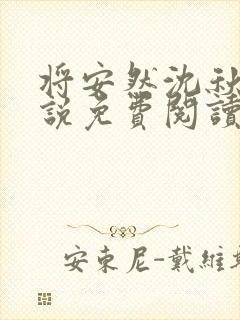 将安然沈秋
說免費閱讀
安東尼-戴維斯